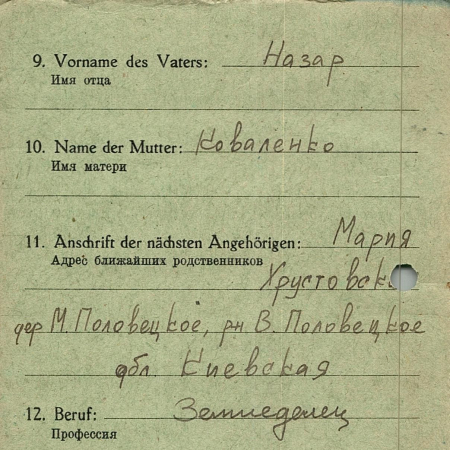 9. Vorname des Vaters: Назар
Имя отца
10. Name der Mutter: Коваленко
Имя матери
11. Anschrift der nächsten Angehörigen: Мария
Адрес ближайших родственников
дер М. Половецкое, рн В. Половецкое
обл. Киевская
12. Beruf: Земледелец
Профессия